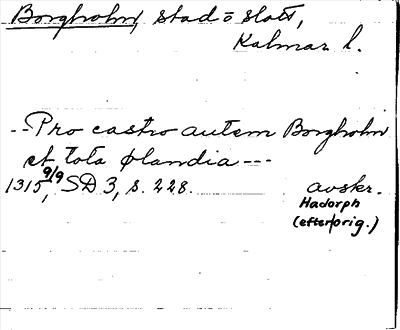 Borgholm, stad o slott,
Kalmar l.
-- Pro castro autem Borgholm
et tota Ølandia ---
1315 9/9, SD 3, s. 228. avskr.
Hadorph
(efter orig.)